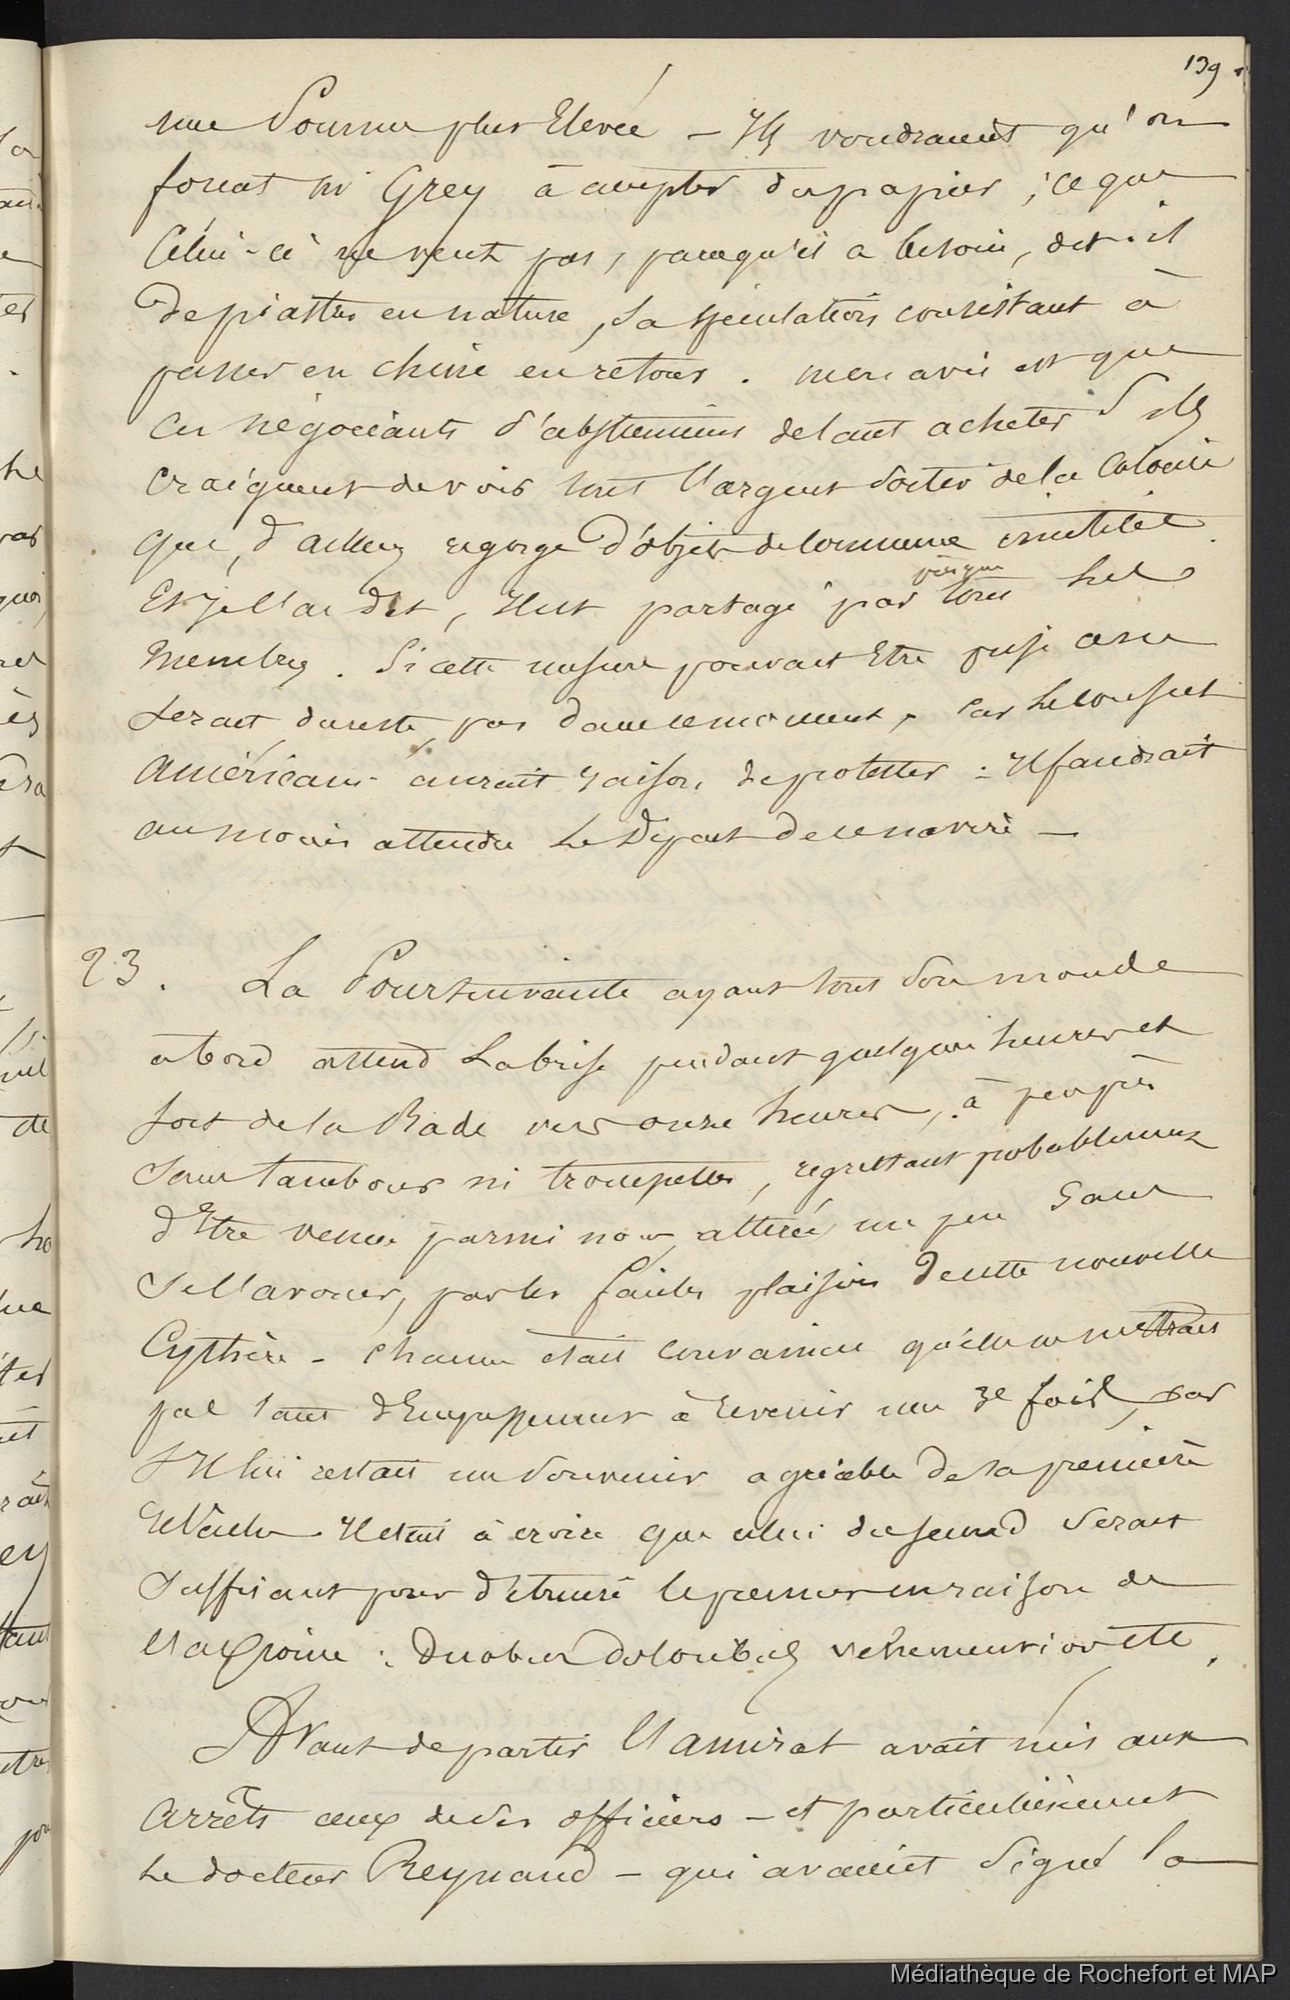 139
une somme plus élevée – Ils voudraient qu'on
forçat Mr Grey à accepter du papier ; ce que
Celui-ci ne veut pas, parcequ'il a besoin, dit-il
de piastres en nature, sa spéculation consistant à
passer en chine en retour. mon avis est que
ces négociants s'abstiennent de tant acheter s'ils
craignent de voir tout l'argent sortir de la Colonie
qui, d'ailleurs regorge d'objets de commune inutilité.
Et je l'ai dit, il est partagé par presque tous les
membres. Si cette mesure pouvait être prise ce ne
serait, du reste, pas dans ce moment, car le consul
américain aurait raison de protester : il faudrait
au moins attendre le départ de ce navire –
23. La Poursuivante ayant tout son monde
à bord attend la brise pendant quelques heures et
sort de la Rade vers onze heures, à peu près
sans tambour ni trompettes, regrettant probablement
d'être venue parmi nous, attirée un peu sans
se l'avouer, par les faciles plaisirs de cette nouvelle
Cythère – chacun était convaincu qu'elle ne mettrait
pas tant d'empressement à revenir une 3e fois, car
s'il lui restait un souvenir agréable de la première
relâche il était à croire que celui du second serait
suffisant pour détruire le premier en raison de
l'axiome : Duobus doloribus vehementior etc.
Avant de partir l'amiral avait mis aux
arrêts ceux de ses officiers – et particulièrement
le docteur Reynaud – qui avaient signé la
Médiathèque de Rochefort et MAP